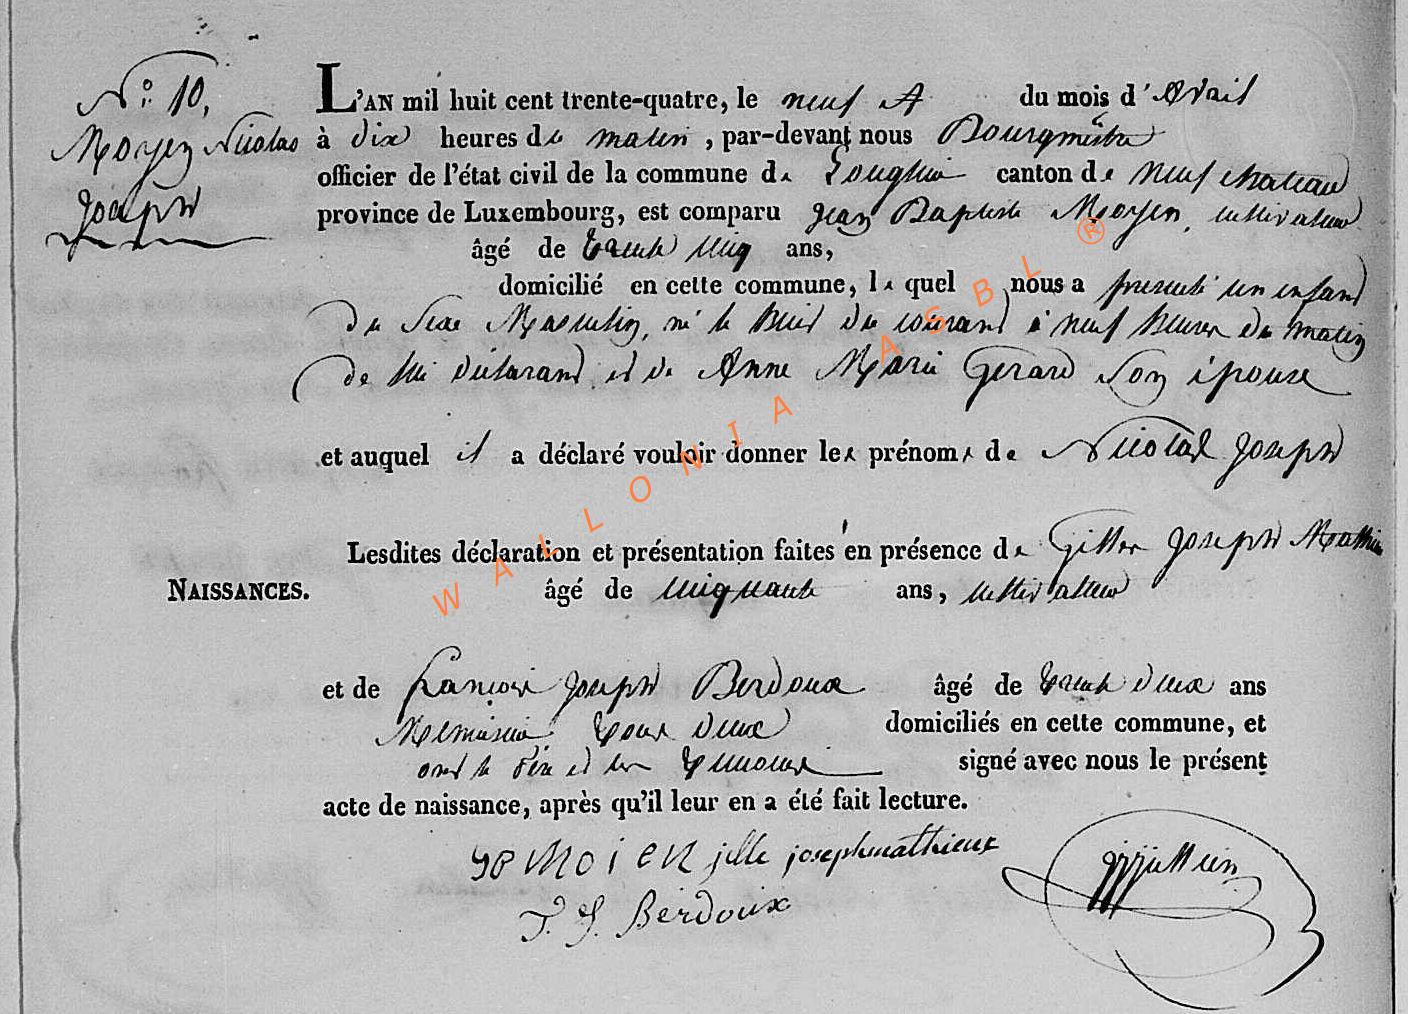 N.º 10,
Moyen Nicolas
Joseph
L'AN mil huit cent trente-quatre, le neuf du mois d'Avril
à dix heures du matin, par-devant nous Bourgmestre
officier de l'état civil de la commune de Longlier canton de neufchateau
province de Luxembourg, est comparu Jean Baptiste Moyen, cultivateur
âgé de trente cinq ans,
domicilié en cette commune, le quel nous a presenté un enfant
du Sexe Masculin, né le huit du courant à neuf heures du matin
de lui déclarant et de Anne Marie Gerard son épouse
et auquel il a déclaré vouloir donner les prénoms de Nicolas Joseph
Lesdites déclaration et présentation faites en présence de Joseph Mathieu
NAISSANCES. âgé de cinquante ans, cultivateur
et de françois Joseph Berdoux âgé de trente deux ans
tous deux domiciliés en cette commune, et
ont le dix et les temoins signé avec nous le présent
acte de naissance, après qu'il leur en a été fait lecture.
MOIEN jille joseph mathieux
F. J. Berdoux
WALLONIA ASBL ®